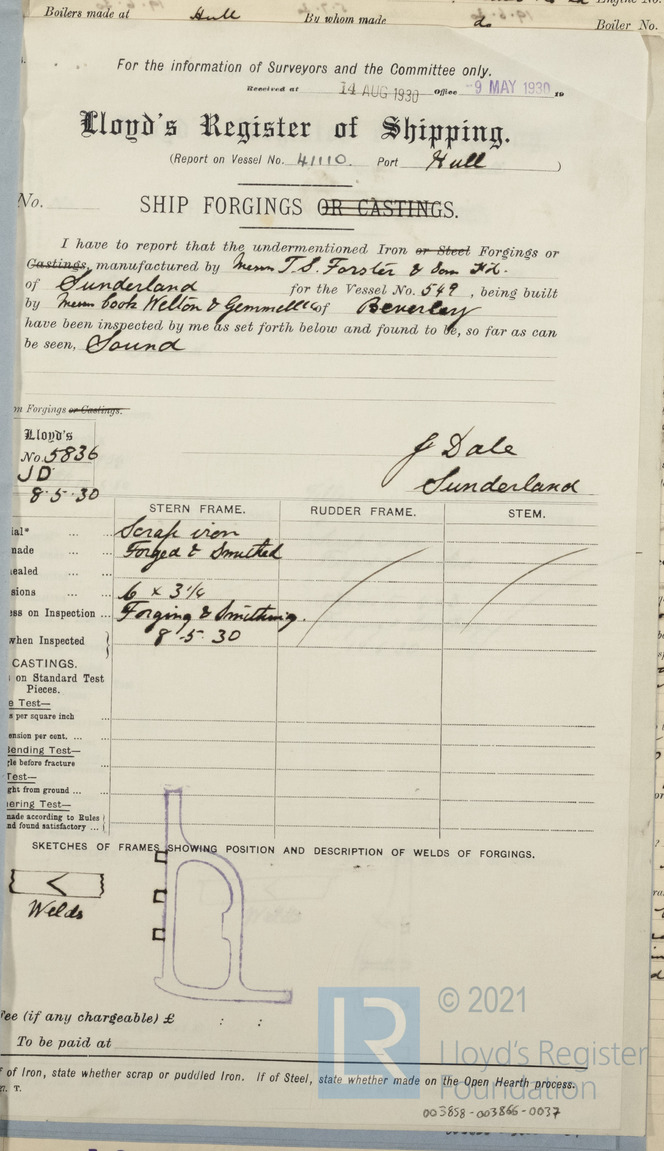 Boilers made at Hull By whom made do Boiler No.
For the information of Surveyors and the Committee only.
Received at 14 AUG 1930 Office -9 MAY 1930 19
Lloyd's Register of Shipping.
(Report on Vessel No. 41110. Port Hull )
No.
SHIP FORGINGS OR CASTINGS.
I have to report that the undermentioned Iron or Steel Forgings or
Castings, manufactured by Messrs T. S. Forster & Son Ltd.
of Sunderland for the Vessel No. 549, being built
by Messrs Cook Welton & Gemmell of Beverley
have been inspected by me as set forth below and found to be, so far as can
be seen, Sound
m Forgings or Castings.
Lloyd's
No. 5836
JD
8.5.30
J Dale
Sunderland
STERN FRAME. RUDDER FRAME. STEM.
ial* ... ... Scrap iron
made ... ... Forged & Smithed
ealed ...
sions ... ... 6 x 3 1/4
ss on Inspection ... Forging & Smithing.
when Inspected 8.5.30
CASTINGS.
on Standard Test
Pieces.
e Test—
s per square inch ...
ension per cent. ... ...
Bending Test—
gle before fracture ...
Test—
ght from ground ... ...
ering Test—
made according to Rules
nd found satisfactory ...
SKETCHES OF FRAMES SHOWING POSITION AND DESCRIPTION OF WELDS OF FORGINGS.
Welds
Fee (if any chargeable) £ : :
To be paid at
f of Iron, state whether scrap or puddled Iron. If of Steel, state whether made on the Open Hearth process.
T.
LR
© 2021
Lloyd's Register
Foundation
003858-003866-0037